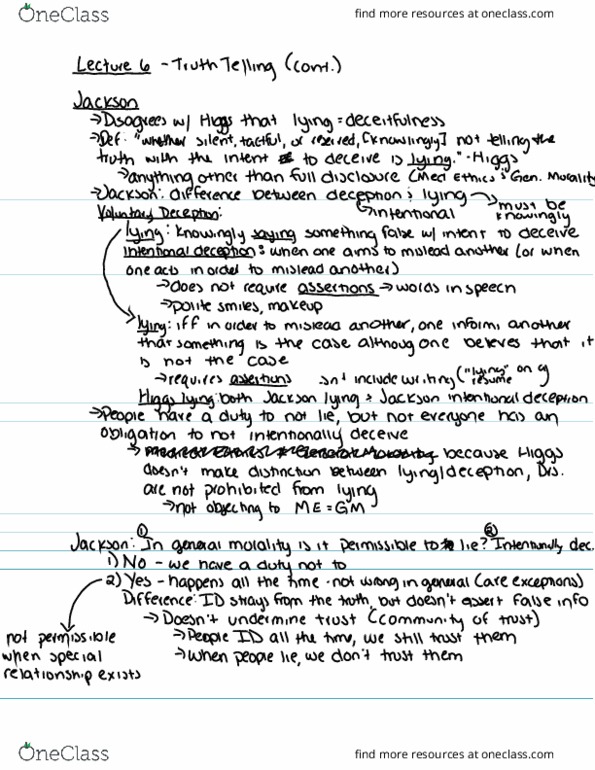 OneClass
find more resources at oneclass.com
Lecture 6 - Truth Telling (cont.)
Jackson
→ Disagrees w/ Higgs that lying = deceitfulness
→ Def: "whether silent, tactful, or reserved, [knowingly] not telling the
truth with the intent to deceive is lying." - Higgs
→ anything other than full disclosure (Med Ethics Gen. Morality
→ Jackson: difference between deception & lying → must be
knowingly
Voluntary Deception: → intentional
lying: knowingly saying something false w/ intent to deceive
intentional deception: when one aims to mislead another (or when
one acts in order to mislead another)
→ does not require assertions → words in speech
→ polite smiles, makeup
lying: iff in order to mislead another, one informs another
that something is the case althoug one believes that it
is not the case
→ requires assertions isn't include writing ("lying" on
resume
Higgs lying: both Jackson lying & Jackson intentional deception
→ People have a duty to not lie, but not everyone has an
obligation to not intentionally deceive
→ because Higgs
doesn't make distinction between lying/deception, Drs.
are not prohibited from lying
→ not objecting to ME = GM
Jackson: In general morality is it permissible to ① lie? ② Intentionally dec.
1) No - we have a duty not to
2) Yes - happens all the time - not wrong in general (are exceptions)
Difference: ID strays from the truth, but doesn't assert false info
→ Doesn't undermine trust (community of trust)
→ People ID all the time, we still trust them
→ When people lie, we don't trust them
not permissible
when special
relationship exists
OneClass
find more resources at oneclass.com